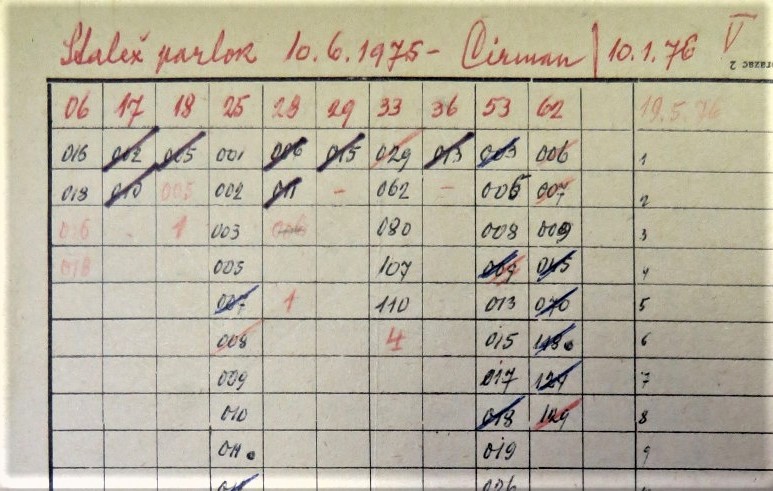 Stalež parlok 10.6.1975- Čirman 10.1.76 V
06 17 18 25 28 29 33 36 53 62 19.5.76
016 002 005 001 006 015 029 013 003 006 1
018 010 005 002 011 - 062 - 006 007 2
016 1 003 006 080 008 009 3
018 005 107 009 045 4
007 1 110 013 070 5
008 4 015 118. 6
009 017 124 7
010 018 129 8
011. 019 9
026